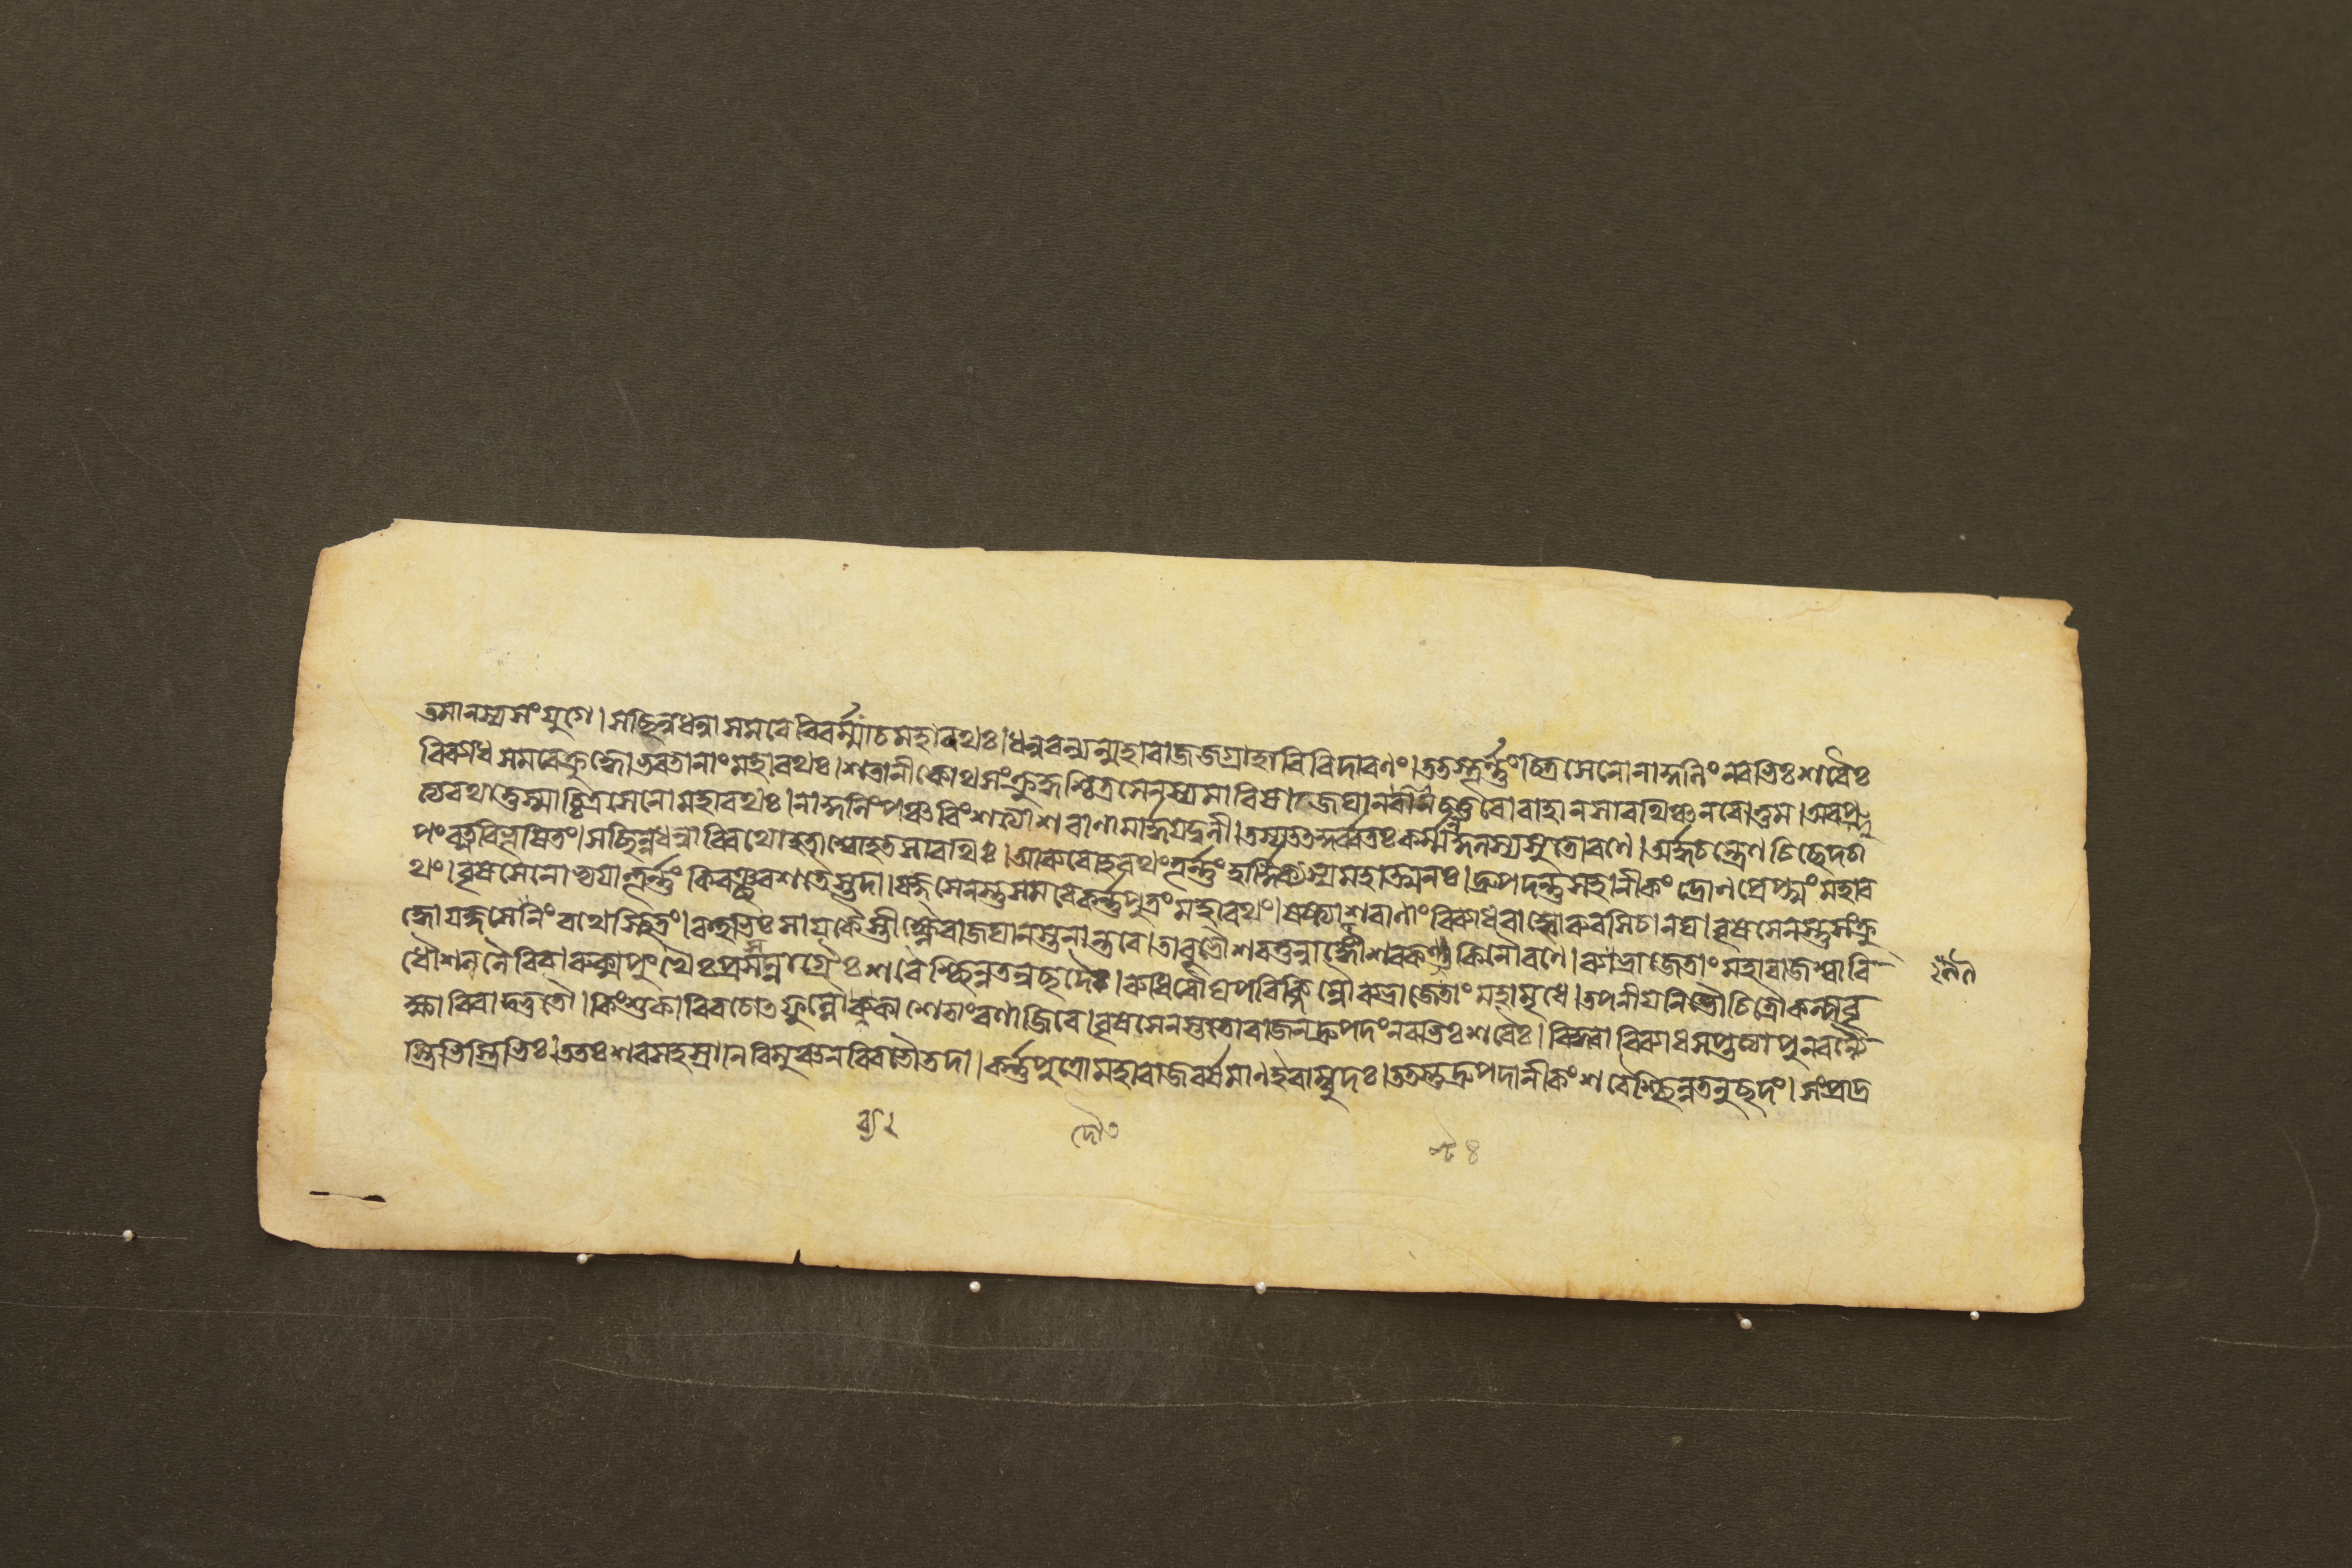 তমানস্য সংযুগে। সছিন্নধন্বা সমরে বিবর্ম্মা চ মহারথঃ। ধনুরন্যন্মহারাজ জগ্রাহারিবিদারণং। ততস্তূর্ণ্ণং চিত্রসেনো নাকুলিং নবভিঃ শরৈঃ
বিব্যাধ সমরে ক্রুদ্ধো ভরতানাং মহারথঃ। শতানীকোথ সংক্রুদ্ধশ্চিত্রসেনস্য মারিষ। জঘান চতুরো বাহান সারথিঞ্চ নরোত্তম। অবপ্লু
ত্য রথাত্তস্মাচ্চিত্রসেনো মহারথঃ। নাকুলিং পঞ্চবিংশত্যা শরাণামার্দ্দয়দ্বলী। তস্য তৎকুর্ব্বতঃ কর্ম্ম নকুলস্য সুতো রণে। অর্দ্ধচন্দ্রেণ চিচ্ছেদ চা
পং রত্নবিভূষিতং। সছিন্নধন্বা বিরথো হতাশ্বো হতসারথিঃ। আরুরোহ রথং তূর্ণ্ণং হার্দ্দিক্যস্য মহাত্মনঃ। দ্রুপদন্তু সহানীকং দ্রোণপ্রেপ্সুং মহার
থং। বৃষসেনোভ্যয়াত্তূর্ণ্ণং কিরঞ্ছরশতৈস্তদা। যজ্ঞসেনস্তু সমরে কর্ণ্ণপুত্রং মহারথং। ষষ্ট্যা শরাণাং বিব্যাধ বাহ্বোরুরসি চানঘ। বৃষসেনস্তু সংক্রু
দ্ধো যজ্ঞসেনিং রথে স্থিতং। বহুভিঃ সায়কৈস্তীক্ষ্ণৈরাজঘান স্তনান্তরে। তাবুভৌ শরনুন্নাঙ্গৌ শরকণ্টকিনৌ রণে। ব্যভ্রাজেতাং মহারাজ শ্বাবি
ধৌ শললৈরিব। রুক্মপুংখৈঃ প্রসন্নাগ্রৈঃ শরৈশ্ছিন্নতনুছদৈঃ। রুধিরৌঘপরিক্লিন্নৌ ব্যভ্রাজেতাং মহামৃধে। তপনীয়নিভৌ চিত্রৌ কল্পবৃ
ক্ষাবিবাদ্ভুতৌ। কিংশুকাবিব চোৎফুল্লৌ ব্যকাশেতাং রণাজিরে। বৃষসেনস্ততো রাজন্ দ্রুপদং নবভিঃ শরৈঃ। বিদ্ধ্বা বিব্যাধ সপ্তত্যা পুনরন্যৈ
স্ত্রিভিস্ত্রিভিঃ। ততঃ শরসহস্রাণি বিমুঞ্চন বিবভৌ তদা। কর্ণ্ণপুত্রো মহারাজ বর্ষমাণ ইবাম্বুদঃ। ততস্তু দ্রুপদানীকং শরৈশ্ছিন্নতনুছদং। সংপ্রাদ্র